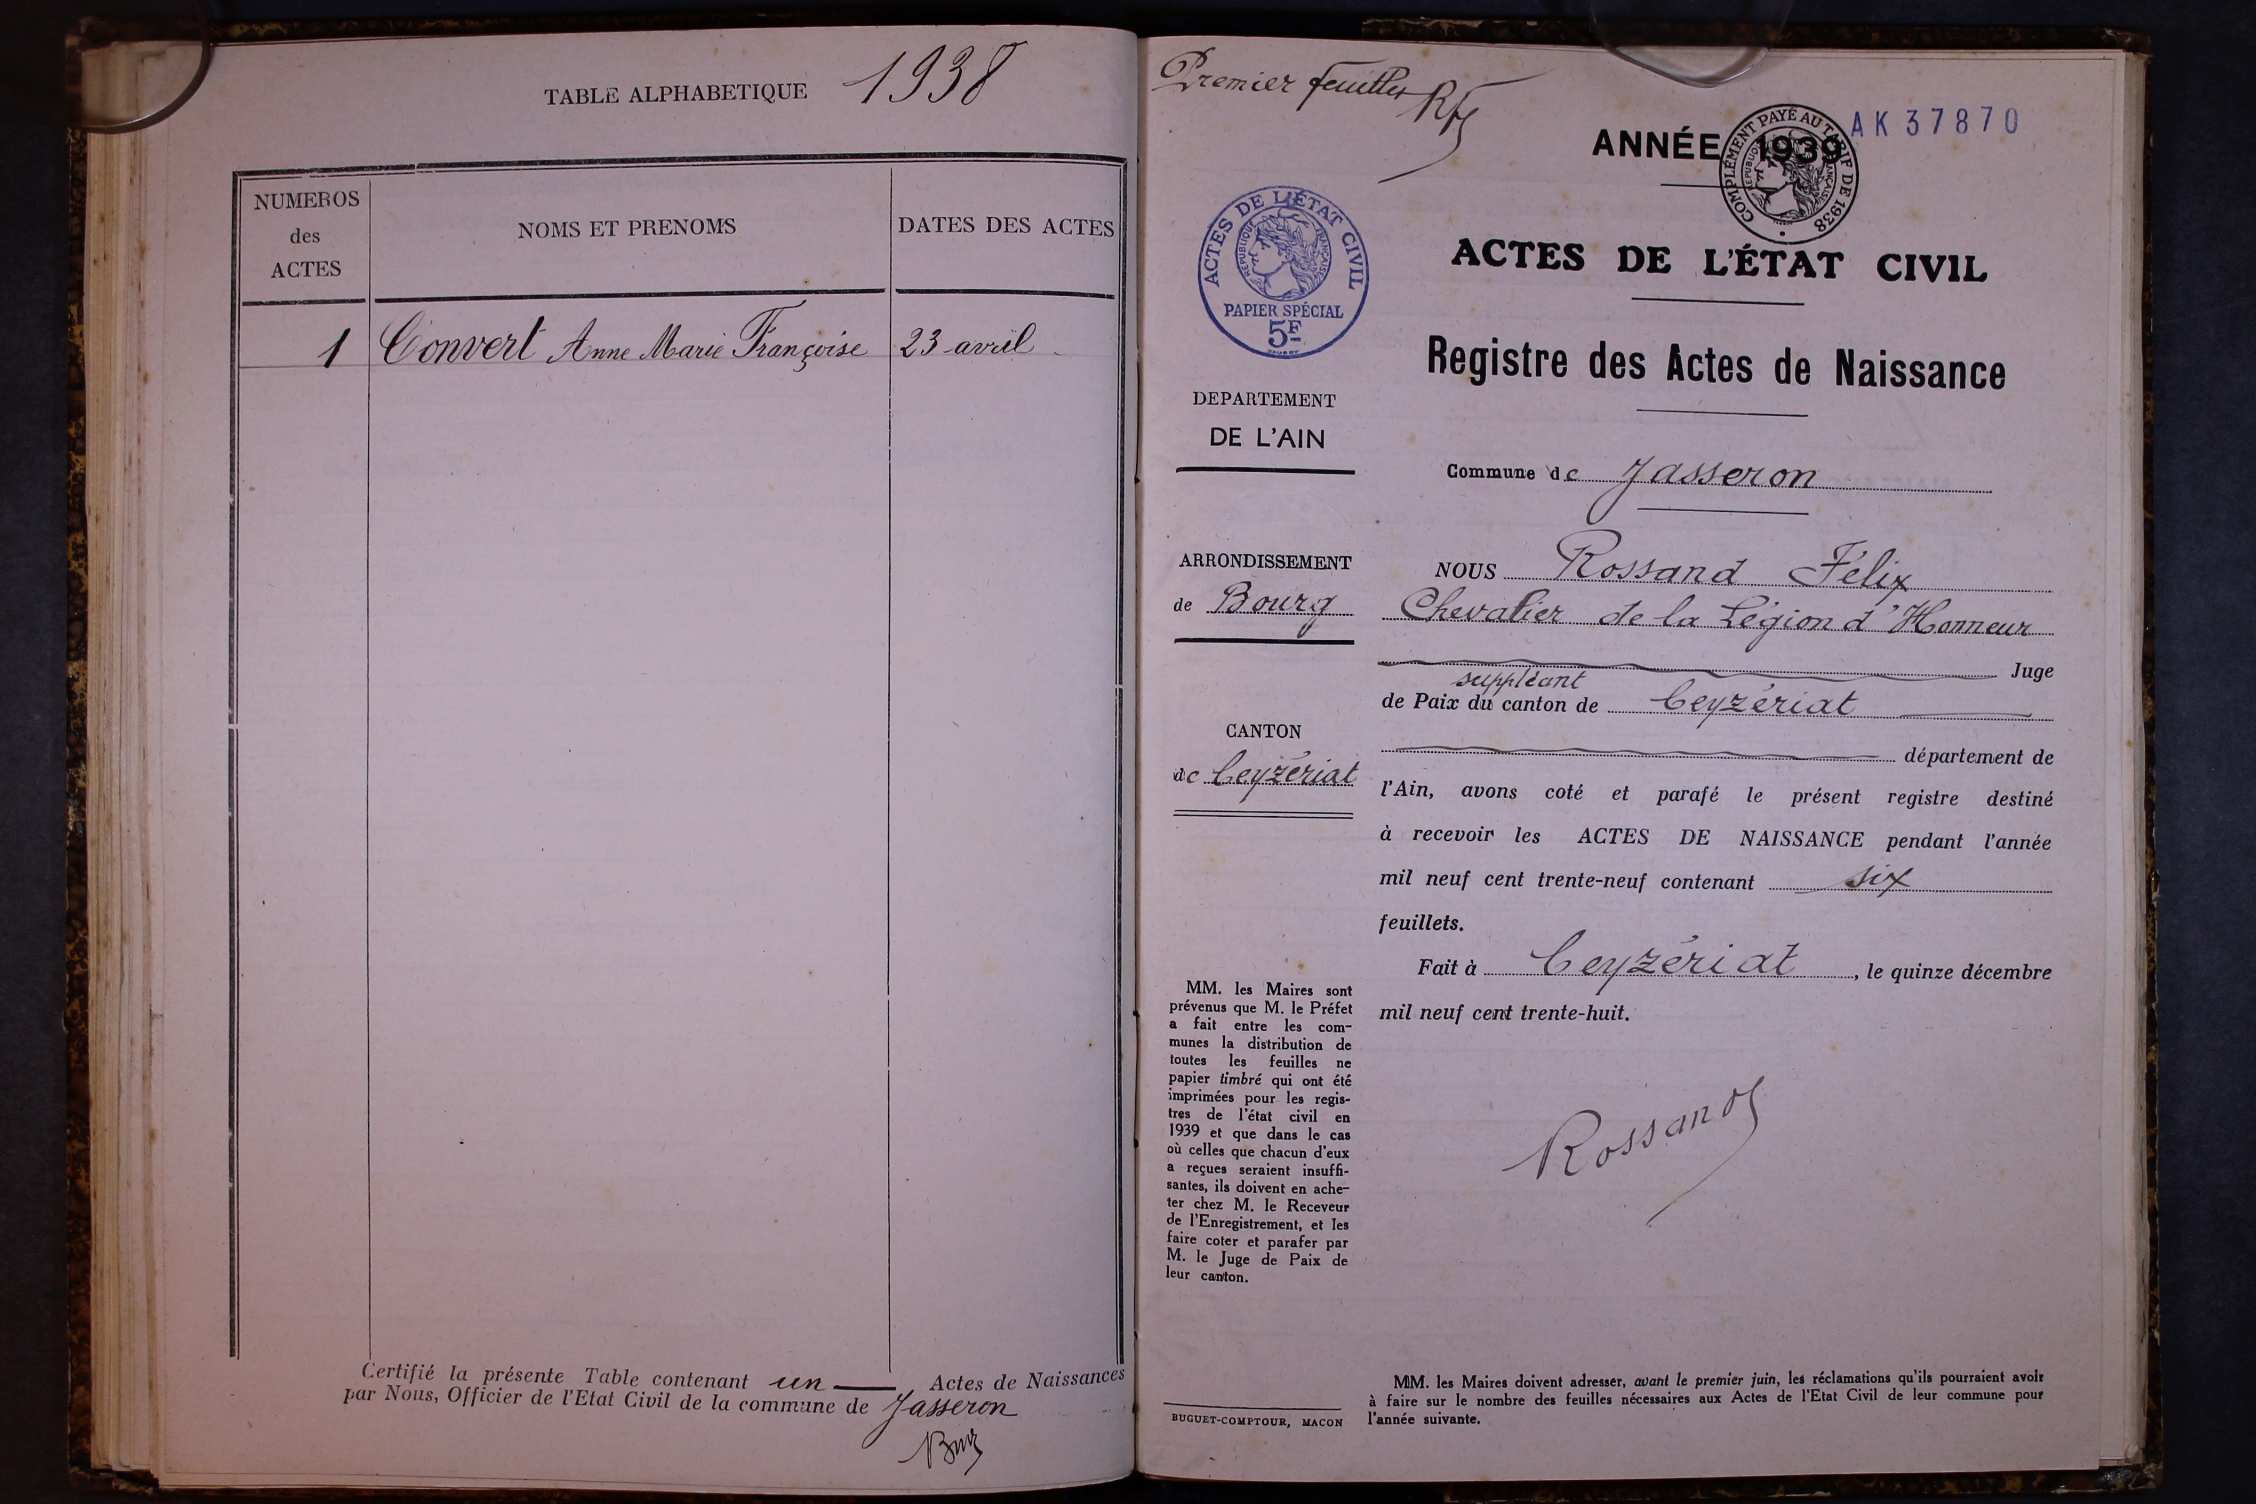 TABLE ALPHABETIQUE 1938
NUMEROS
des
ACTES
NOMS ET PRENOMS
DATES DES ACTES
1 Convert Anne Marie Françoise 23 avril
Certifié la présente Table contenant un Actes de Naissances
par Nous, Officier de l'Etat Civil de la commune de Jasseron
Premier feuillet
ANNÉE 1939
COMPLÉMENT PAYÉ AU TARIF DE 1938
RÉPUBLIQUE FRANÇAISE
AK 37870
ACTES DE L'ÉTAT CIVIL
RÉPUBLIQUE FRANÇAISE
PAPIER SPÉCIAL
5F
DEPARTEMENT
DE L'AIN
ARRONDISSEMENT
de Bourg
CANTON
de Ceyzériat
MM. les Maires sont
prévenus que M. le Préfet
a fait entre les com-
munes la distribution de
toutes les feuilles ne
papier timbré qui ont été
imprimées pour les regis-
tres de l'état civil en
1939 et que dans le cas
où celles que chacun d'eux
a reçues seraient insuffi-
santes, ils doivent en ache-
ter chez M. le Receveur
de l'Enregistrement, et les
faire coter et parafer par
M. le Juge de Paix de
leur canton.
BUGUET-COMPTOUR, MACON
ACTES DE L'ÉTAT CIVIL
Registre des Actes de Naissance
Commune de Jasseron
NOUS Rossand Félix
Chevalier de la Légion d'Honneur
Juge
suppléant
de Paix du canton de Ceyzériat
département de
l'Ain, avons coté et parafé le présent registre destiné
à recevoir les ACTES DE NAISSANCE pendant l'année
mil neuf cent trente-neuf contenant six
feuillets.
Fait à Ceyzériat, le quinze décembre
mil neuf cent trente-huit.
Rossand
MM. les Maires doivent adresser, avant le premier juin, les réclamations qu'ils pourraient avoir
à faire sur le nombre des feuilles nécessaires aux Actes de l'Etat Civil de leur commune pour
l'année suivante.